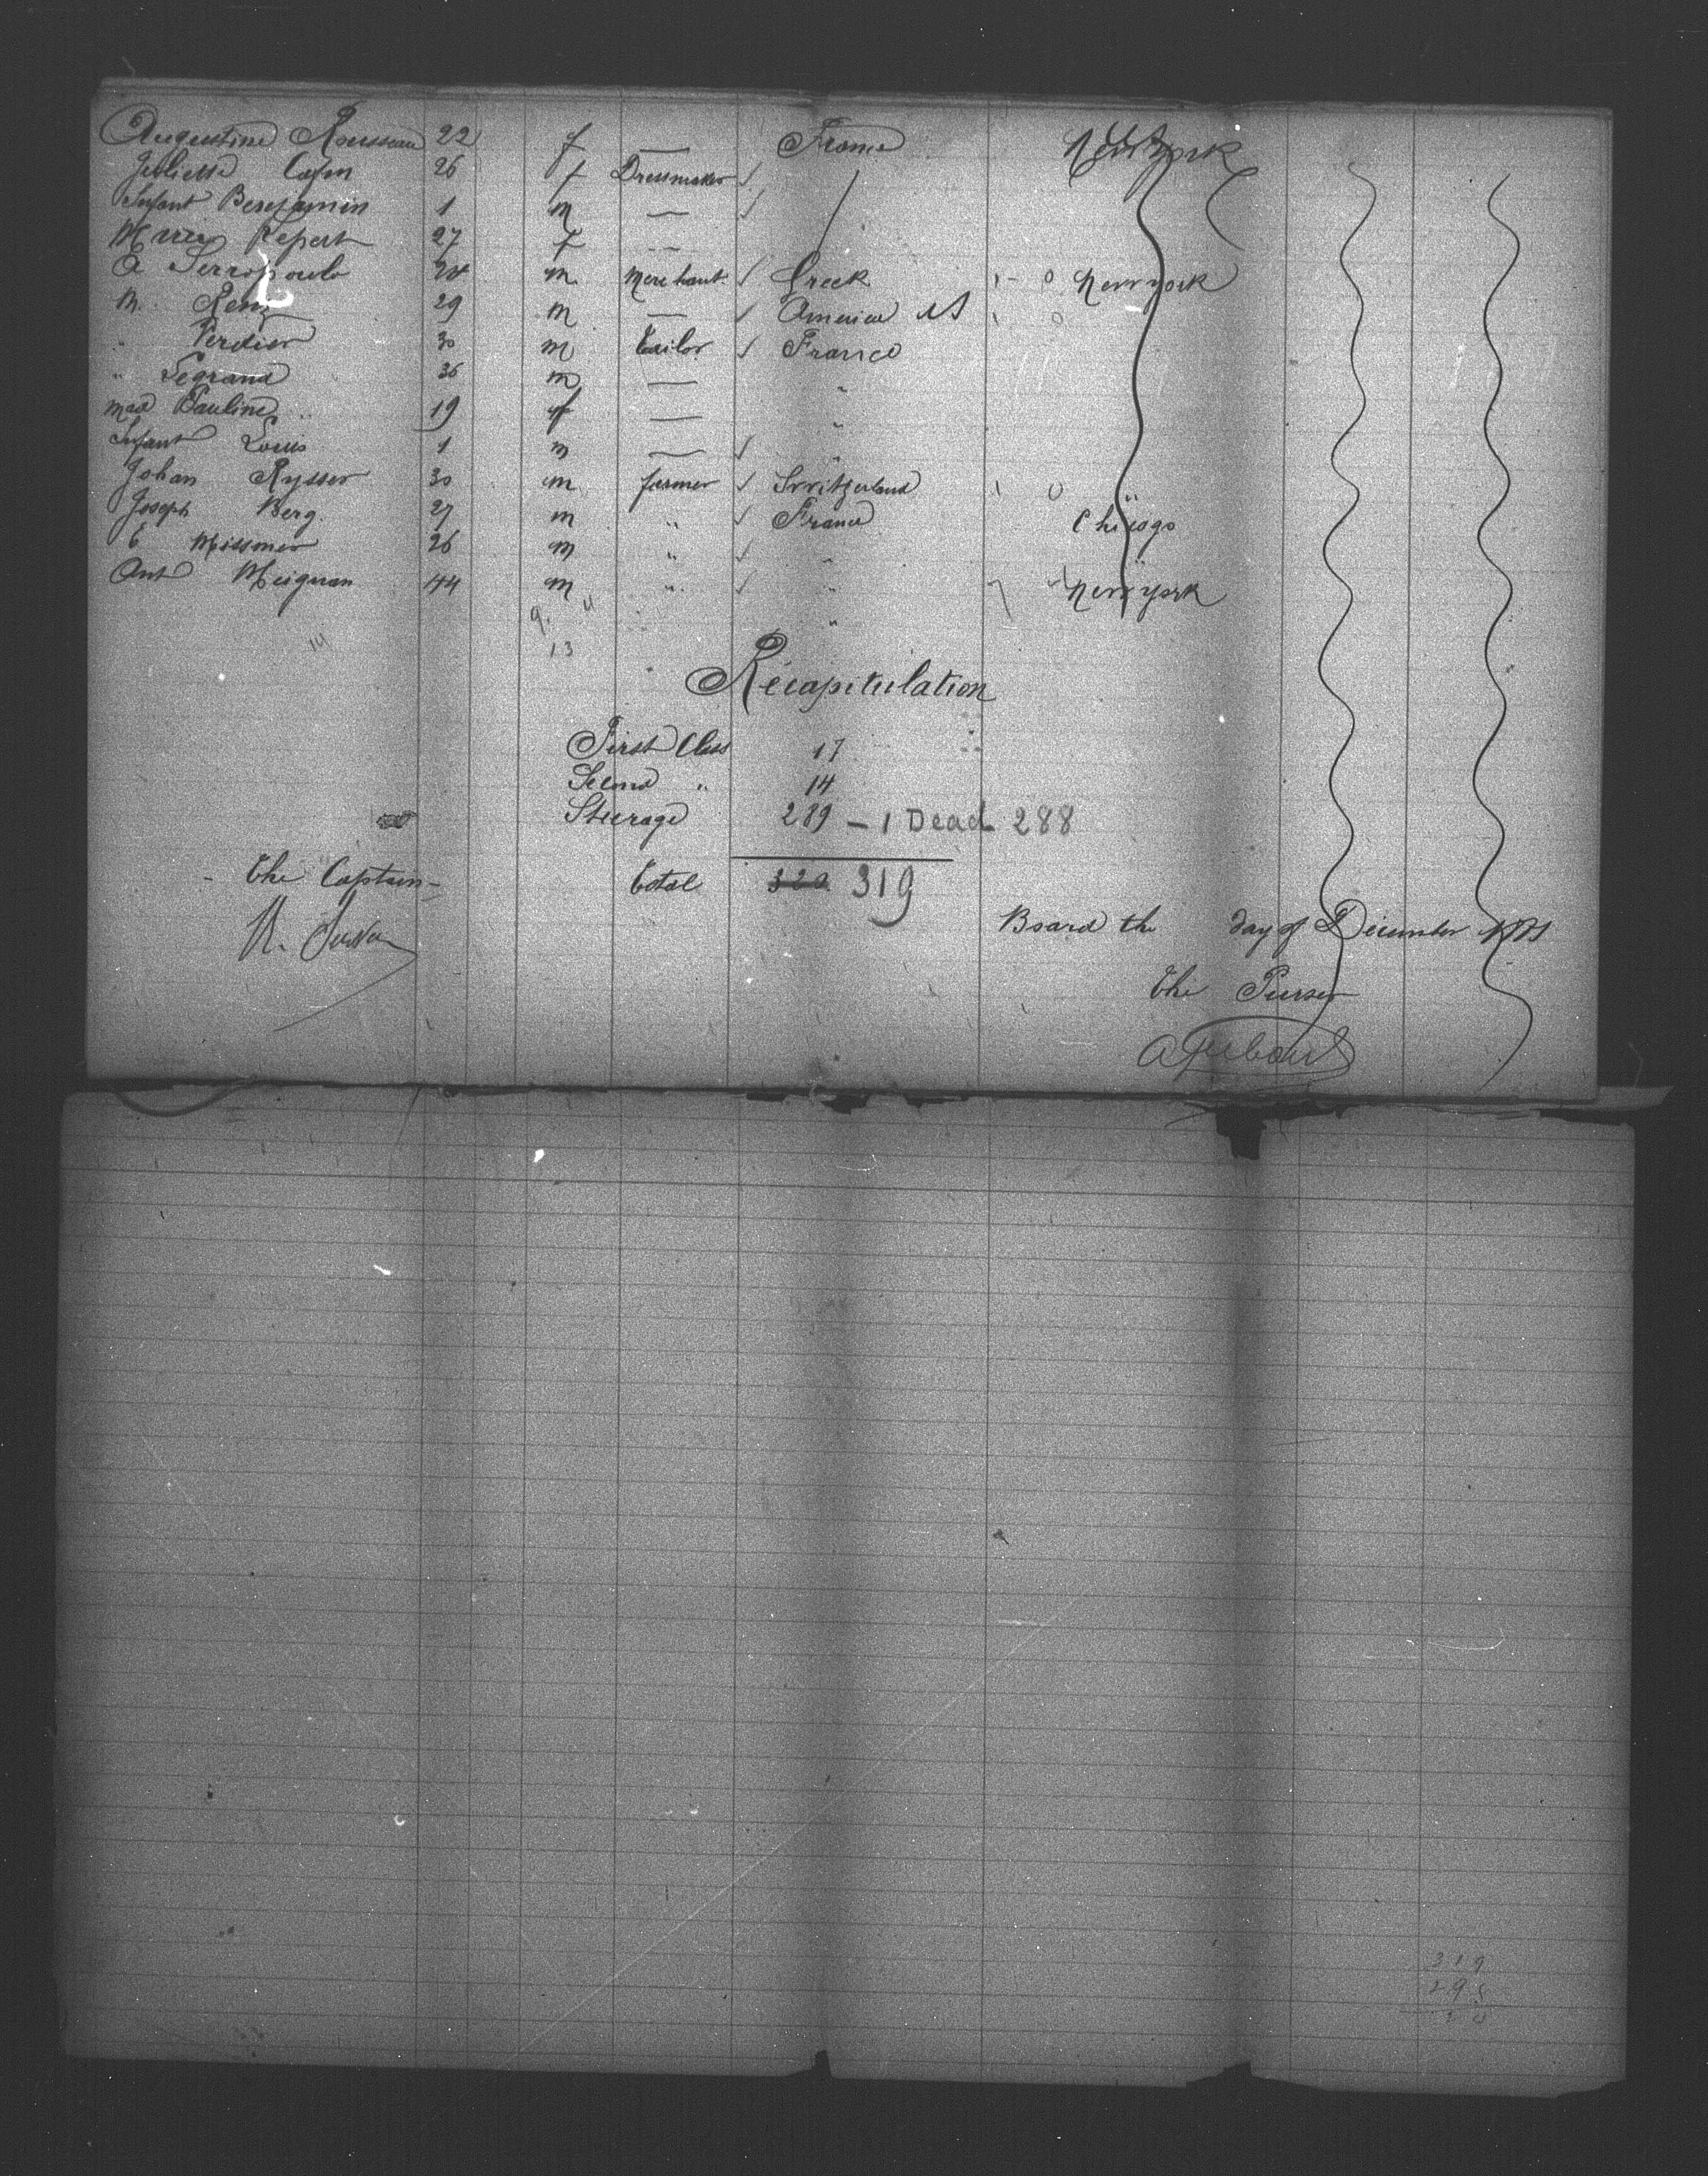 Augustine Rousseau 22 f — France New York
Juliette 26 f Dressmaker
Infant Benjamin 1 m —
27 f —
A Serropoulo m Merchant Greek 1 - 0 New york
M. Remy 29 m — America
" Verdier 30 m Tailor France
" Legrand 36 m — "
Mad Pauline " 19 f — "
Infant Louis 1 m — "
Johan Rysser 30 m farmer Switzerland 1 0
Joseph Berg. 27 m " France Chicago
E Missmer 26 m " " "
Ant Meignan 44 m " " New york
14 13
Recapitulation
First Class 17
Second " 14
Steerage 289 – 1 Dead 288
The Captain Total 320 319
Board the day of December
The Purser
319
295